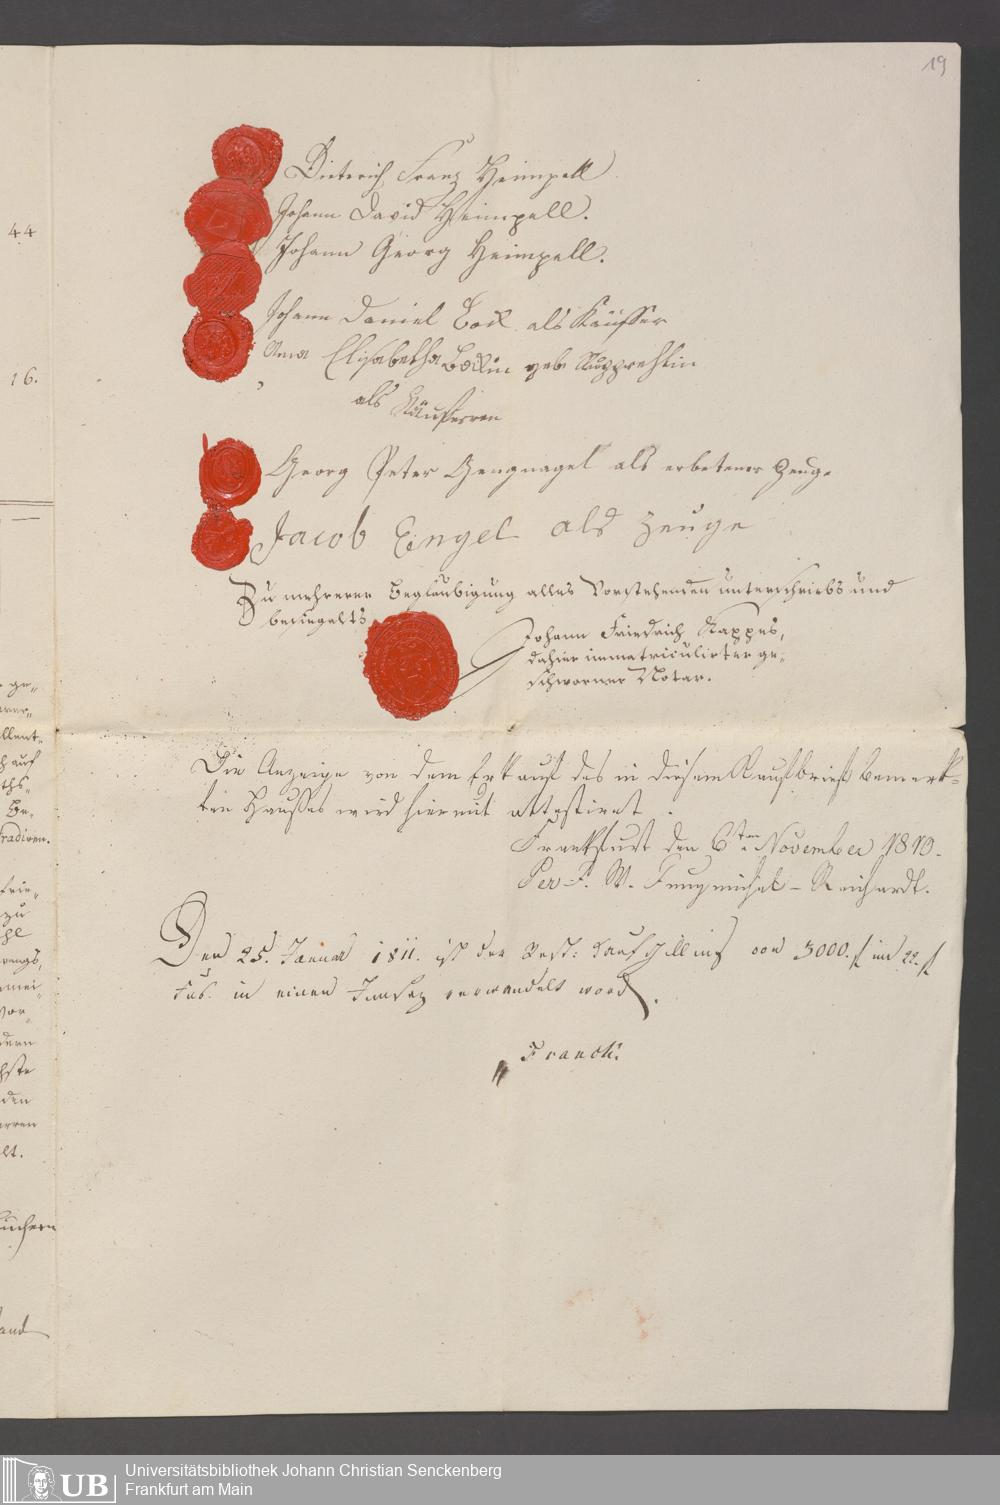 19
Dieterich Franz Heimpell
Johann David Heimpell.
Johann Georg Heimpell.
Johann Daniel Bock als Käuffer
Anna Elisabetha Bockin geb. Rupprechtin
als Käufferren
Georg Peter Gengnagel als erbetener Zeuge
Jacob Engel als Zeuge
Zu mehrerer Beglaubigung alles Vorstehenden unterschriebs und
besiegelts
Johann Friedrich Kappes,
dahier immatriculirter ge-
schworner Notar.
Die Anzeige von dem Erkauf des in diesem Kaufbrief bemerk-
ten Hausses wird hiermit attestiret.
Frankfurt den 6ten November 1810.
Per F. W. Reichardt.
Den 25. Januar 1811. ist der Rest: Kaufschilling von 3000. f im 22. f
Fus. in einen Insatz verwandelt word.
Franck.
44
16.
ge-
llent-
auf
ths-
Be-
tradiren.
frie-
zu
mei-
vor-
dern
chste
den
rren
lt.
and
UB Universitätsbibliothek Johann Christian Senckenberg
Frankfurt am Main